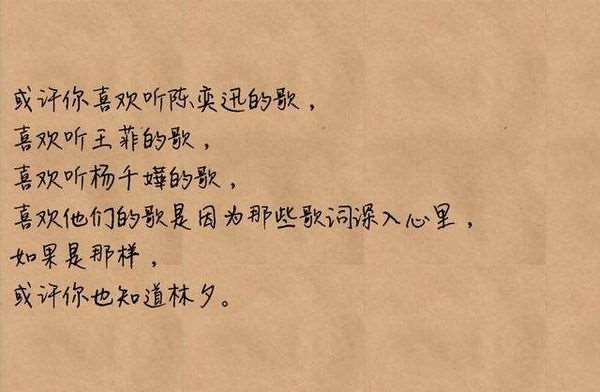 或许你喜欢听陈奕迅的歌，
喜欢听王菲的歌，
喜欢听杨千嬅的歌，
喜欢他们的歌是因为那些歌词深入心里，
如果是那样，
或许你也知道林夕。